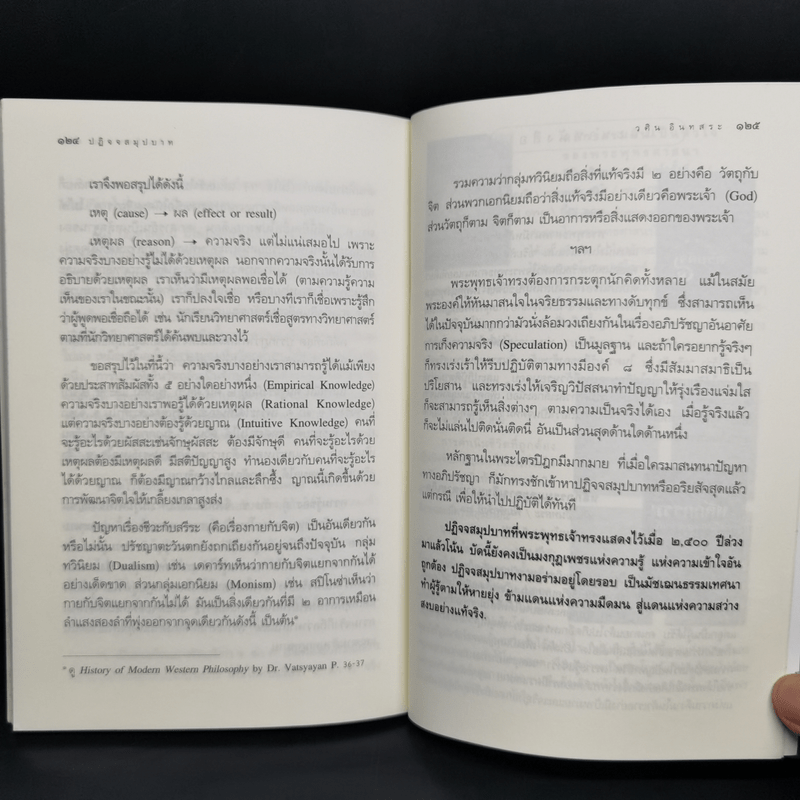 ๑๒๔ ปฏิจจสมุปบาท
เราจึงพอสรุปได้ดังนี้
เหตุ (cause) → ผล (effect or result)
เหตุผล (reason) → ความจริง แต่ไม่แน่เสมอไป เพราะ
ความจริงบางอย่างรู้ไม่ได้ด้วยเหตุผล นอกจากความจริงนั้นได้รับการ
อธิบายด้วยเหตุผล เราเห็นว่ามีเหตุผลพอเชื่อได้ (ตามความรู้ความ
เห็นของเราในขณะนั้น) เราก็ปลงใจเชื่อ หรือบางทีเราก็เชื่อเพราะรู้สึก
ว่าผู้พูดพอเชื่อถือได้ เช่น นักเรียนวิทยาศาสตร์เชื่อสูตรทางวิทยาศาสตร์
ตามที่นักวิทยาศาสตร์ได้ค้นพบและวางไว้
ขอสรุปไว้ในที่นี้ว่า ความจริงบางอย่างเราสามารถรู้ได้แม้เพียง
ด้วยประสาทสัมผัสทั้ง ๕ อย่างใดอย่างหนึ่ง (Empirical Knowledge)
ความจริงบางอย่างเราพอรู้ได้ด้วยเหตุผล (Rational Knowledge)
แต่ความจริงบางอย่างต้องรู้ด้วยญาณ (Intuitive Knowledge) คนที่
จะรู้อะไรด้วยผัสสะเช่นจักษุผัสสะ ต้องมีจักษุดี คนที่จะรู้อะไรด้วย
เหตุผลต้องมีเหตุผลดี มีสติปัญญาสูง ทำนองเดียวกับคนที่จะรู้อะไร
ได้ด้วยญาณ ก็ต้องมีญาณกว้างไกลและลึกซึ้ง ญาณนี้เกิดขึ้นด้วย
การพัฒนาจิตใจให้เกลี้ยงเกลาสูงส่ง
ปัญหาเรื่องชีวะกับสรีระ (คือเรื่องกายกับจิต) เป็นอันเดียวกัน
หรือไม่นั้น ปรัชญาตะวันตกยังถกเถียงกันอยู่จนถึงปัจจุบัน กลุ่ม
ทวินิยม (Dualism) เช่น เดคาร์ทเห็นว่า กายกับจิตแยกจากกันได้
อย่างเด็ดขาด ส่วนกลุ่มเอกนิยม (Monism) เช่น สปิโนซ่าเห็นว่า
กายกับจิตแยกจากกันไม่ได้ มันเป็นสิ่งเดียวกันที่มี ๒ อาการเหมือน
ลำแสงสองลำที่พุ่งออกจากจุดเดียวกันดังนี้ เป็นต้น"
" ดู History of Modern Western Philosophy by Dr. Vatsyayan P. 36-37
วศิน อินทสระ ๑๒๕
รวมความว่ากลุ่มทวินิยมถือสิ่งที่แท้จริงมี ๒ อย่างคือ วัตถุกับ
จิต ส่วนพวกเอกนิยมถือว่าสิ่งแท้จริงมีอย่างเดียวคือพระเจ้า (God)
ส่วนวัตถุก็ตาม จิตก็ตาม เป็นอาการหรือสิ่งแสดงออกของพระเจ้า
ฯลฯ
พระพุทธเจ้าทรงต้องการกระตุกนักคิดทั้งหลาย แม้ในสมัย
พระองค์ให้หันมาสนใจในจริยธรรมและทางดับทุกข์ ซึ่งสามารถเห็น
ได้ในปัจจุบันมากกว่ามัวนั่งล้อมวงเถียงกันในเรื่องอภิปรัชญาอันอาศัย
การเก็งความจริง (Speculation) เป็นมูลฐาน และถ้าใครอยากรู้จริงๆ
ก็ทรงเร่งเร้าให้รีบปฏิบัติตามทางมีองค์ ๘ ซึ่งมีสัมมาสมาธิเป็น
ปริโยสาน และทรงเร่งให้เจริญวิปัสสนาทำปัญญาให้รุ่งเรืองแจ่มใส
ก็จะสามารถรู้เห็นสิ่งต่างๆ ตามความเป็นจริงได้เอง เมื่อรู้จริงแล้ว
ก็จะไม่แล่นไปติดนั่นติดนี่ อันเป็นส่วนสุดด้านใดด้านหนึ่ง
หลักฐานในพระไตรปิฎกมีมากมาย ที่เมื่อใครมาสนทนาปัญหา
ทางอภิปรัชญา ก็มักทรงชักเข้าหาปฏิจจสมุปบาทหรืออริยสัจสุดแล้ว
แต่กรณี เพื่อให้นำไปปฏิบัติได้ทันที
ปฏิจจสมุปบาทที่พระพุทธเจ้าทรงแสดงไว้เมื่อ ๒,๕๐๐ ปีล่วง
มาแล้วโน้น บัดนี้ยังคงเป็นมงกุฎเพชรแห่งความรู้ แห่งความเข้าใจอัน
ถูกต้อง ปฏิจจสมุปบาทงามอร่ามอยู่โดยรอบ เป็นมัชเฌนธรรมเทศนา
ทำผู้รู้ตามให้หายยุ่ง ข้ามแดนแห่งความมืดมน สู่แดนแห่งความสว่าง
สงบอย่างแท้จริง.